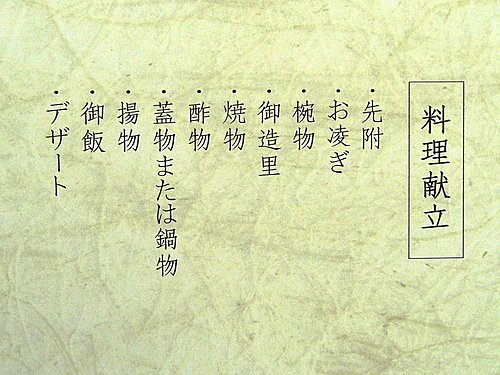 料理献立
・先附
・お凌ぎ
・椀物
・御造里
・焼物
・酢物
・蓋物または鍋物
・揚物
・御飯
・デザート